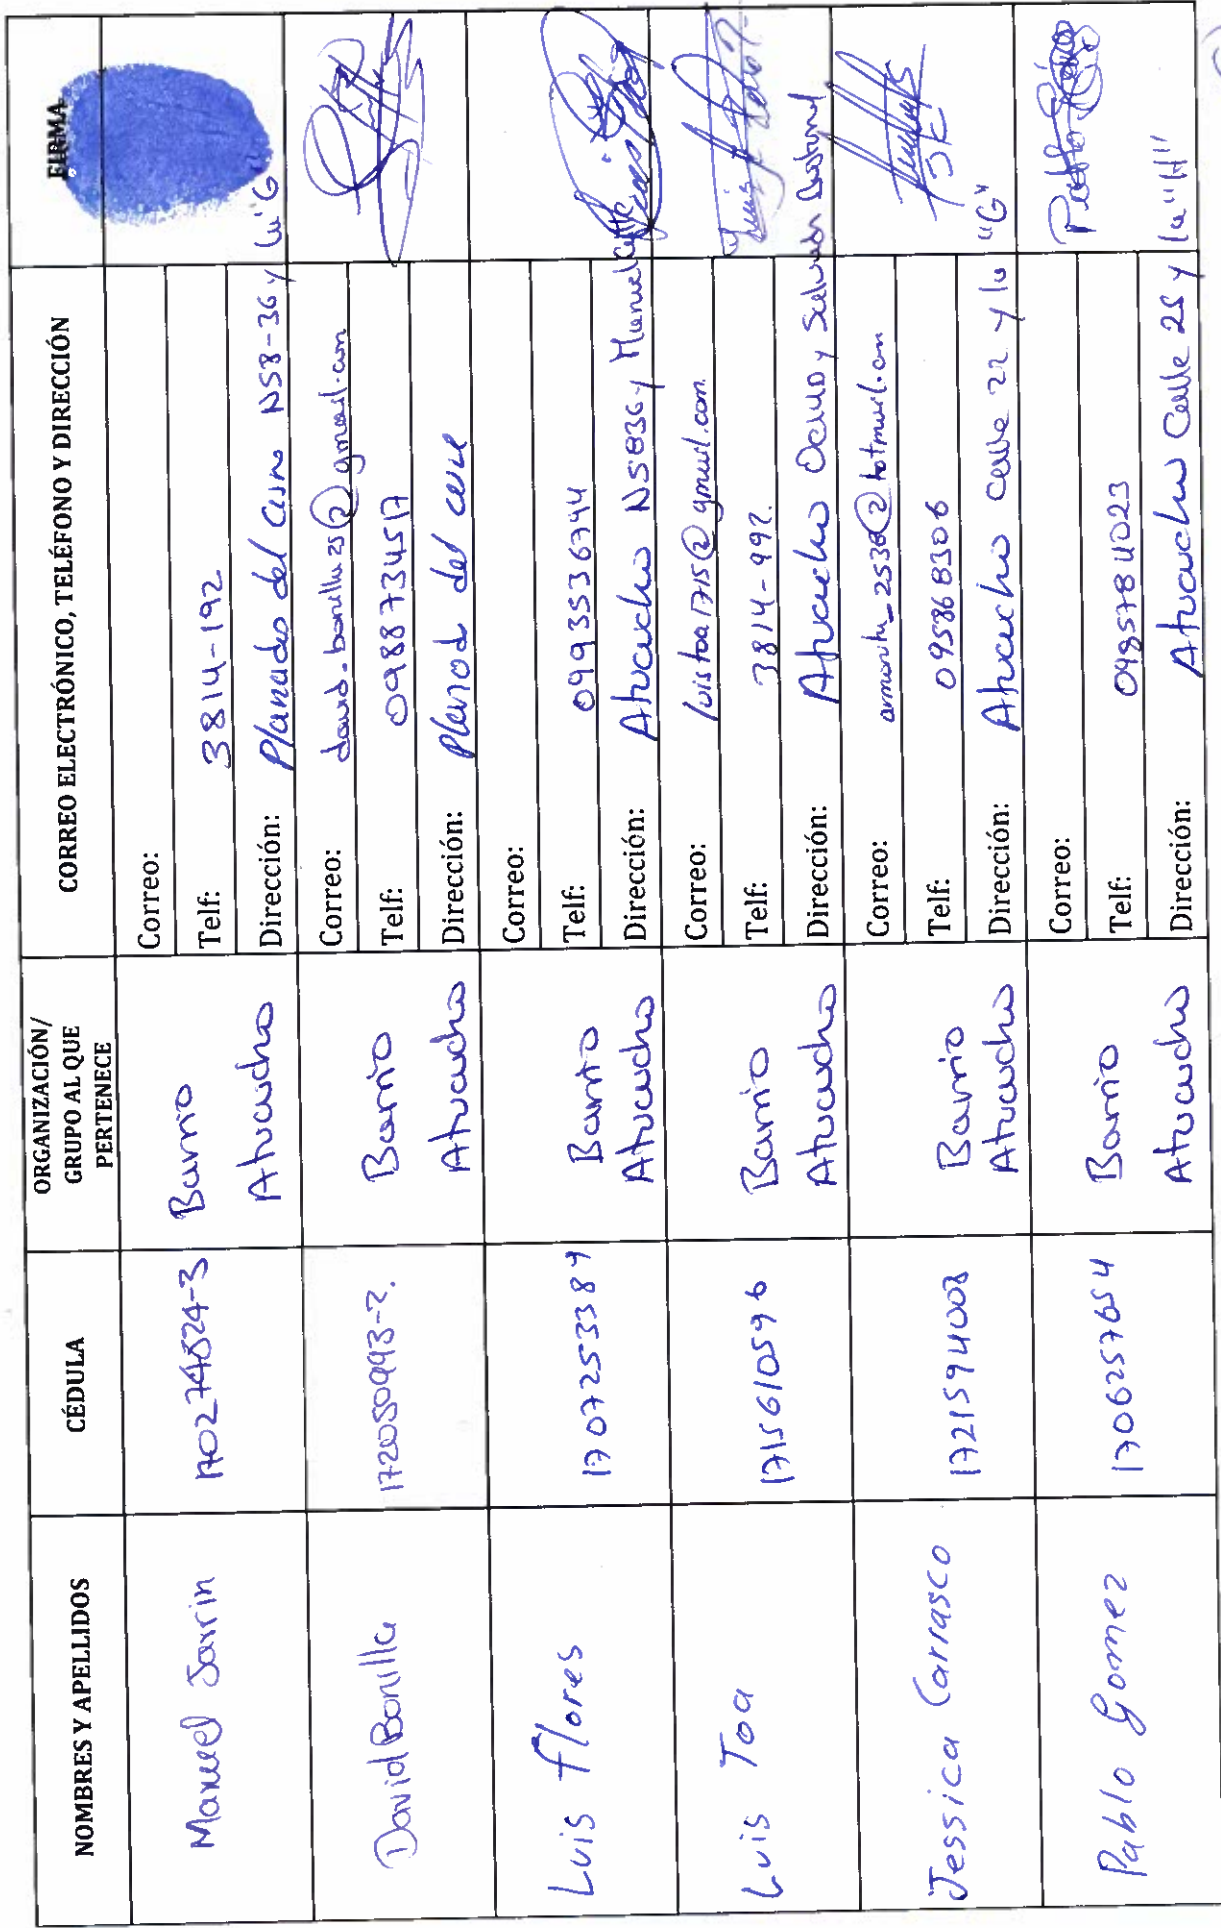 NOMBRES Y APELLIDOS
CÉDULA
ORGANIZACIÓN/
GRUPO AL QUE
PERTENECE
CORREO ELECTRÓNICO, TELÉFONO Y DIRECCIÓN
FIRMA
Manuel Jarrin
170274824-3
Barrio
Atucucho
Correo:
Telf: 3814-192
Dirección: Planada del N58-36 y la "G"
David Bonilla
172050993-2.
Barrio
Atucucho
Correo: david.bonilla25@gmail.com
Telf: 0988734517
Dirección: del
Luis Flores
1707253389
Barrio
Atucucho
Correo:
Telf: 0993536744
Dirección: Atucucho N5836 y Manuel
Luis Toa
1715610596
Barrio
Atucucho
Correo: luistoa1715@gmail.com
Telf: 3814-992.
Dirección: Atucucho y Salvador
Luis
Jessica Carrasco
1721594008
Barrio
Atucucho
Correo: @hotmail.com
Telf: 095868306
Dirección: Atucucho Calle 22 y la "G"
Pablo Gomez
1706257654
Barrio
Atucucho
Correo:
Telf: 0985784023
Dirección: Atucucho Calle 25 y la "H"
Pablo